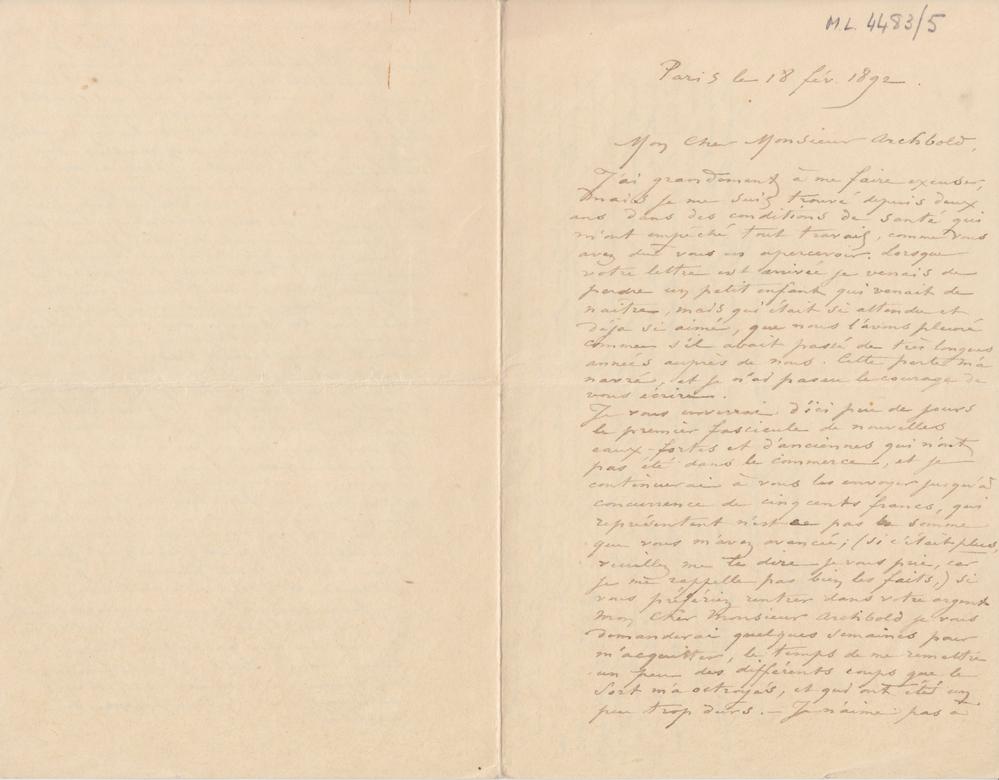 M.L. 4483/5
Paris le 18 fév. 1892.
Mon Cher Monsieur Archbold,
J'ai grandement à me faire excuser,
mais je me suis trouvé depuis deux
ans dans des conditions de santé qui
m'ont empêché tout travail, comme vous
avez dû vous en apercevoir. Lorsque
votre lettre est arrivée je venais de
perdre un petit enfant qui venait de
naître, mais qui était si attendu et
déjà si aimé, que nous l'avons pleuré
comme s'il avait passé de très longues
années auprès de nous. Cette perte m'a
navré, et je n'ai pas eu le courage de
vous écrire.
Je vous enverrai d'ici peu de jours
le premier fascicule de nouvelles
eaux-fortes et d'anciennes qui n'ont
pas été dans le commerce, et je
continuerai à vous les envoyer jusqu'à
concurrence de cinq cents francs, qui
représentent n'est ce pas la somme
que vous m'avez avancée; (si c'était plus
veuillez me le dire je vous prie, car
je me rappelle pas bien les faits,) si
vous préfériez rentrer dans votre argent
mon cher Monsieur Archbold je vous
demanderai quelques semaines pour
m'acquitter, le temps de me remettre
un peu des différents coups que le
sort m'a octroyés, et qui ont étés un
peu trop durs. — Je n'aime pas à